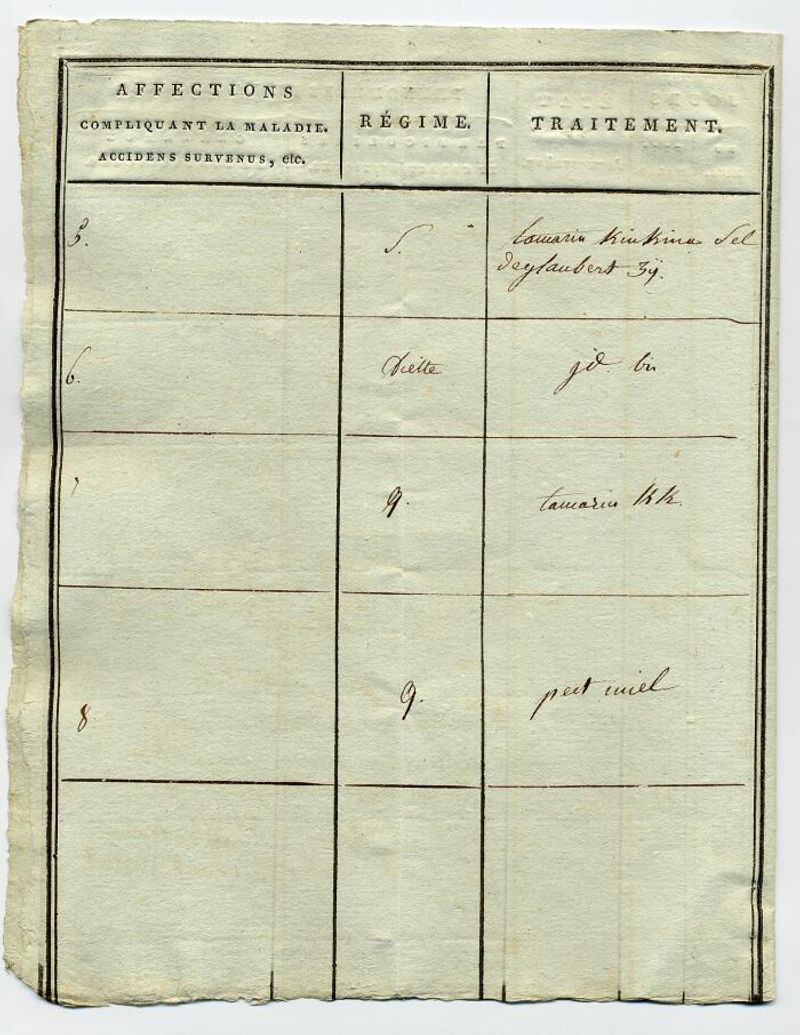 AFFECTIONS
COMPLIQUANT LA MALADIE.
ACCIDENS SURVENUS, etc.
RÉGIME.
TRAITEMENT.
5.
S.
tamarin Kinkina Sel
deglaubert ʒij.
6.
Diette
jd. bis
7
q.
tamarin KK.
8
q.
pect miel